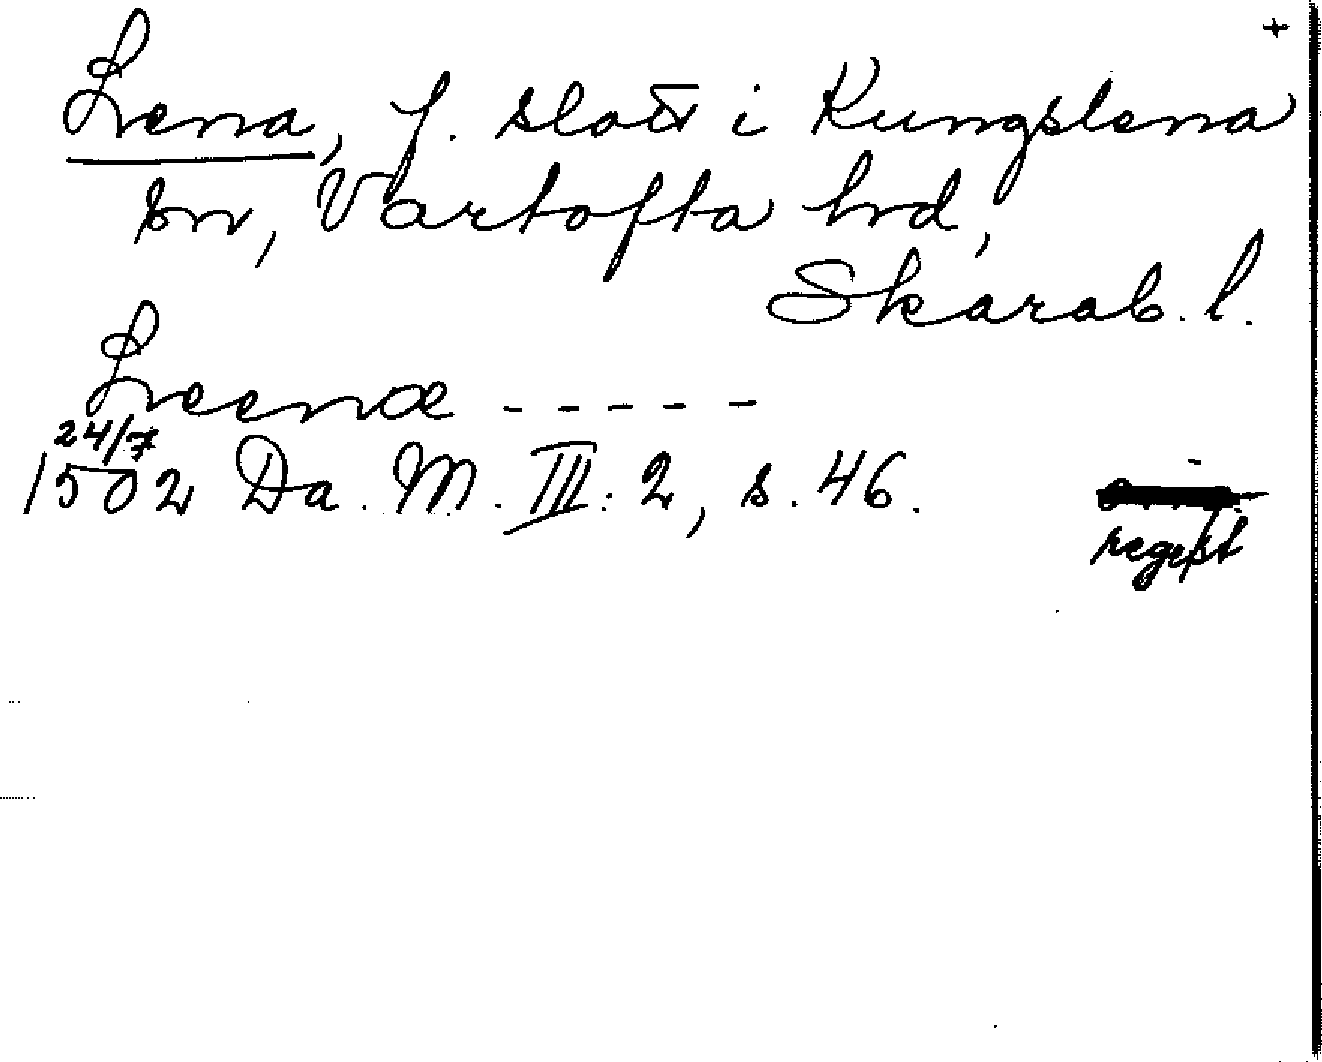 +
Lena, f. slott i Kungslena
sn, Vartofta hrd,
Skarab. l.
Leenæ - - - - -
24/7
1502 Da. M. III: 2, s. 46.
regest